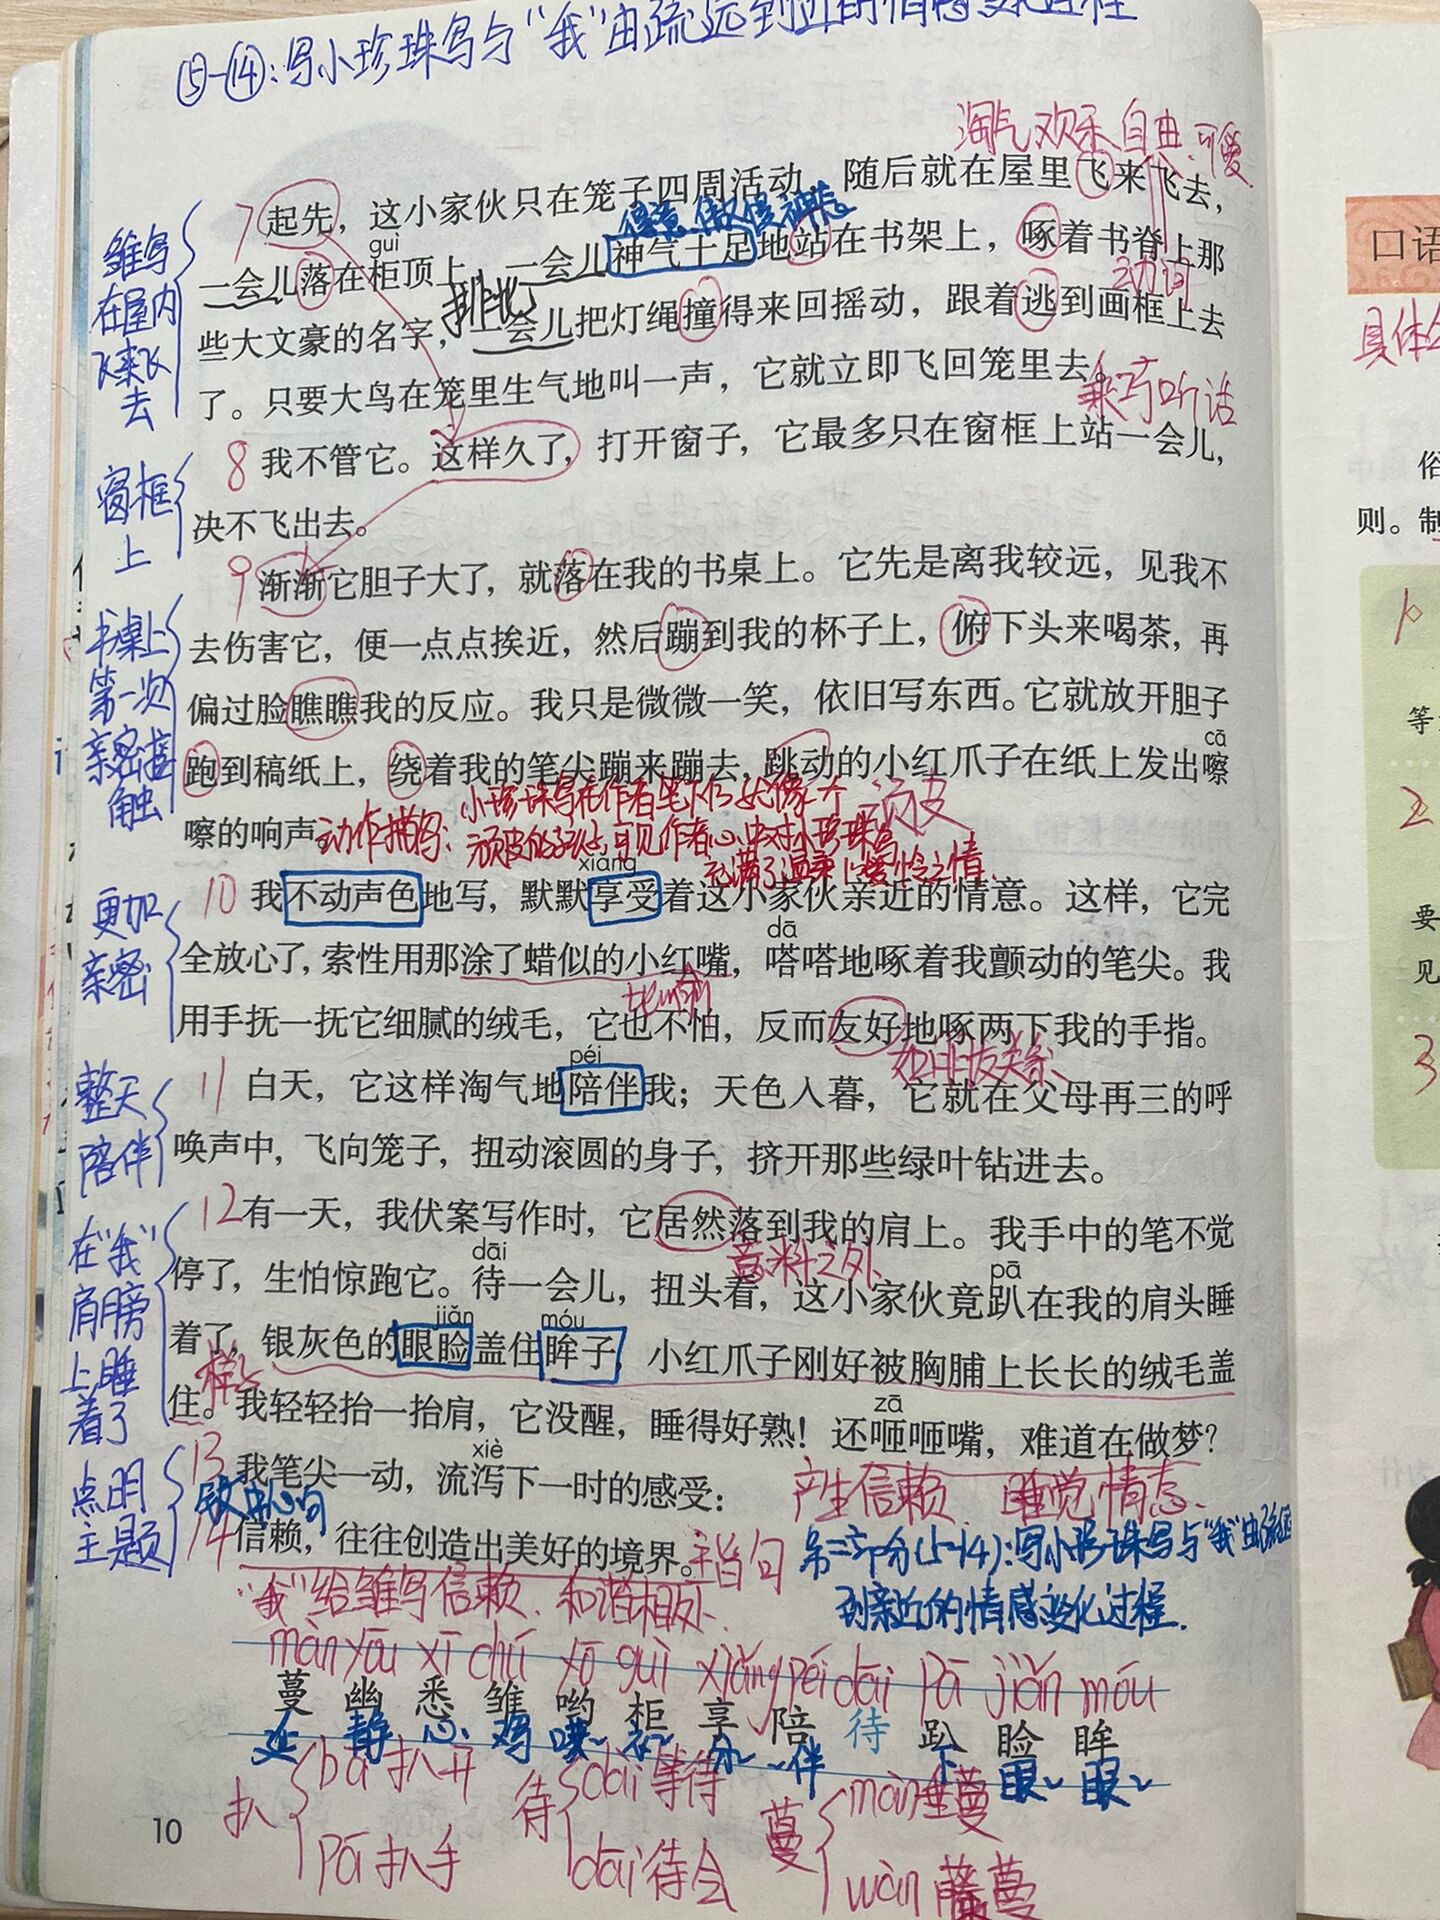 ⑤-⑭:写小珍珠鸟与“我”由疏远到
淘气 欢乐 自由、可爱
7 起先，这小家伙只在笼子四周活动，随后就在屋里飞来飞去，
得意、傲慢神态
guì
一会儿落在柜顶上，一会儿神气十足地站在书架上，啄着书脊上那
动词
排比
些大文豪的名字，一会儿把灯绳撞得来回摇动，跟着逃到画框上去
了。只要大鸟在笼里生气地叫一声，它就立即飞回笼里去。
乖巧听话
雏鸟
在屋内
飞来飞
去
8 我不管它。这样久了，打开窗子，它最多只在窗框上站一会儿，
决不飞出去。
窗框
上
9 渐渐它胆子大了，就落在我的书桌上。它先是离我较远，见我不
去伤害它，便一点点挨近，然后蹦到我的杯子上，俯下头来喝茶，再
偏过脸瞧瞧我的反应。我只是微微一笑，依旧写东西。它就放开胆子
cā
跑到稿纸上，绕着我的笔尖蹦来蹦去，跳动的小红爪子在纸上发出嚓
嚓的响声。
书桌上
第一次
亲密接
触
顽皮
动作描写：小珍珠鸟在作者笔下仿佛像个
顽皮的孩子，可见作者心中对小珍珠鸟
充满了温柔、爱怜之情、
xiǎng
10 我不动声色地写，默默享受着这小家伙亲近的情意。这样，它完
dā
全放心了，索性用那涂了蜡似的小红嘴，嗒嗒地啄着我颤动的笔尖。我
比喻
用手抚一抚它细腻的绒毛，它也不怕，反而友好地啄两下我的手指。
如朋友关系、
更加
亲密
péi
11 白天，它这样淘气地陪伴我；天色入暮，它就在父母再三的呼
唤声中，飞向笼子，扭动滚圆的身子，挤开那些绿叶钻进去。
整天
陪伴
12 有一天，我伏案写作时，它居然落到我的肩上。我手中的笔不觉
意料之外、
dāi
pā
停了，生怕惊跑它。待一会儿，扭头看，这小家伙竟趴在我的肩头睡
jiǎn
móu
着了，银灰色的眼睑盖住眸子，小红爪子刚好被胸脯上长长的绒毛盖
样子
zā
住。我轻轻抬一抬肩，它没醒，睡得好熟！还咂咂嘴，难道在做梦？
在“我”
肩膀
上睡
着了
xiè
13 我笔尖一动，流泻下一时的感受：
产生信赖 睡觉情态、
14 信赖，往往创造出美好的境界。
主旨句
点明
主题
“我”给雏鸟信赖、和谐相处、
第三部分(5-14):写小珍珠鸟与“我”由疏远
到亲近的情感变化过程.
màn yōu xī chú yō guì xiǎng péi dāi pā jiǎn móu
蔓 幽 悉 雏 哟 柜 享 陪 待 趴 睑 眸
扒 bā扒开
pá扒手
待 dài等待
dāi待会
蔓 màn
wàn藤蔓
10
口语
具体
俗
则。制
1
等
2
要
见
3